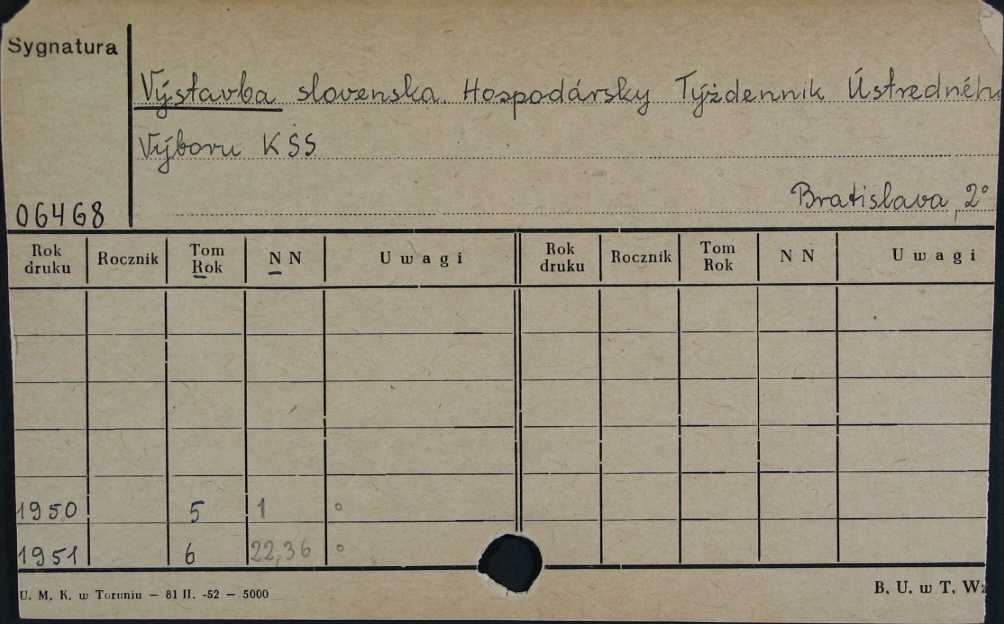 Sygnatura
Výstavba slovenska. Hospodársky Týždenník Ústredného
Výboru KSS
06468
Bratislava, 2°
Rok druku Rocznik Tom Rok N N Uwagi Rok druku Rocznik Tom Rok N N Uwagi
1950 5 1 °
1951 6 22,36 °
U. M. K. w Toruniu — 81 II. -52 — 5000
B. U. w T. Wz